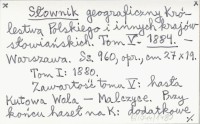 Słownik geograficzny Kró-
lestwa Polskiego i innych krajów
słowiańskich. Tom V - 1884.
Warszawa. S. 960, opr., cm. 27 x 19.
Tom I: 1880.
Zawartość tomu V: hasła
Kutowa Wola - Malczyce. Przy
końcu haseł na K: dodatkowe